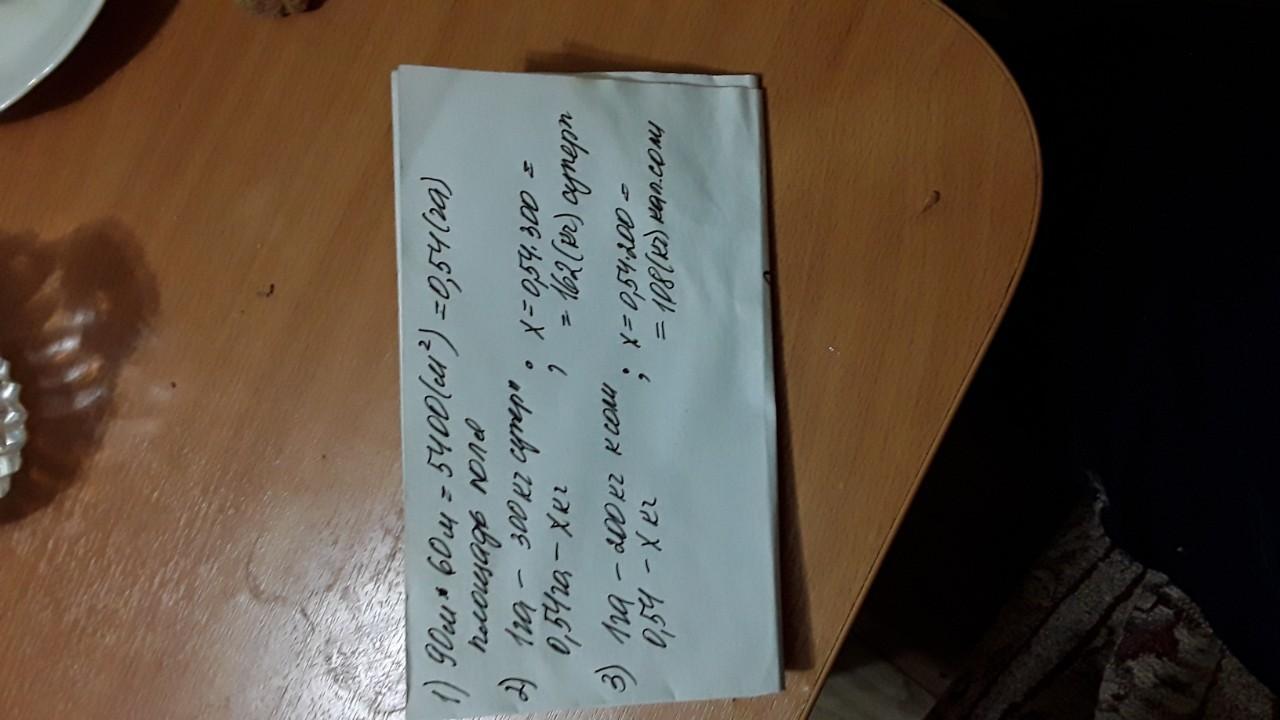 1) 90м • 60м = 5400(м²) = 0,54(га)
площадь поля
2) 1га – 300кг суперп ; х = 0,54.300 =
0,54га – х кг = 162(кг) суперп
3) 1га – 200кг к сол ; х = 0,54.200 =
0,54 – х кг = 108(кг) кал.сол